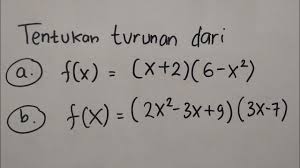 Tentukan turunan dari
a. f(x) = (x+2)(6-x²)
b. f(x) = (2x²-3x+9)(3x-7)